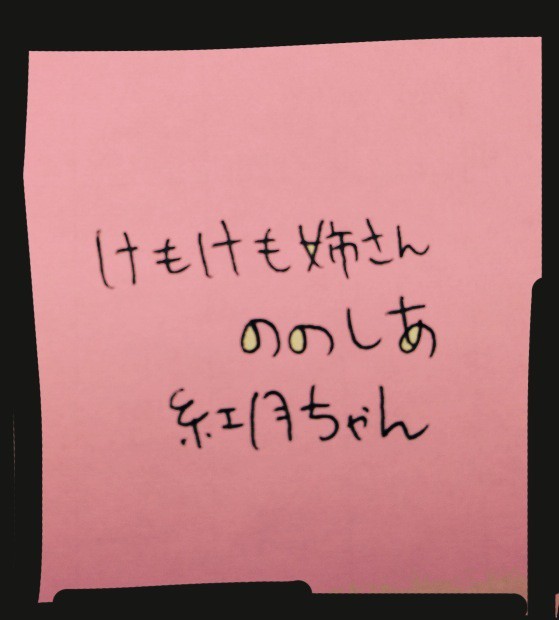 けもけも姉さん
ののしあ
紅月ちゃん